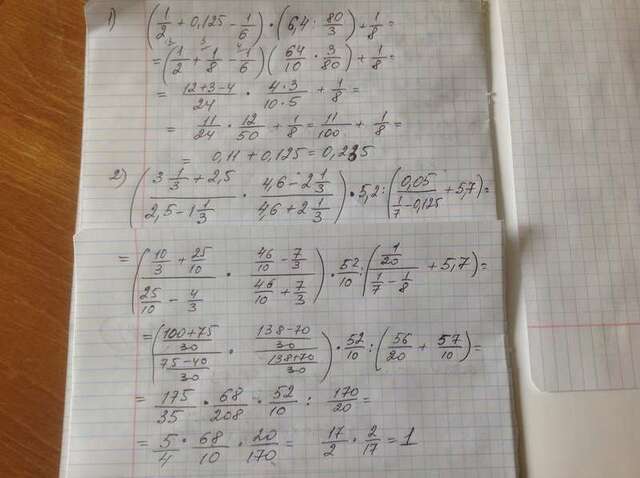 1) (1/2 + 0,125 - 1/6) · (6,4 : 80/3) + 1/8 =
= (1/2 + 1/8 - 1/6) (64/10 · 3/80) + 1/8 =
= (12+3-4)/24 · (4·3)/(10·5) + 1/8 =
= 11/24 · 12/50 + 1/8 = 11/100 + 1/8 =
= 0,11 + 0,125 = 0,235
2) ((3 1/3 + 2,5)/(2,5 - 1 1/3) · (4,6 - 2 1/3)/(4,6 + 2 1/3)) · 5,2 : (0,05/(1/7 - 0,125) + 5,7) =
= ((10/3 + 25/10)/(25/10 - 4/3) · (46/10 - 7/3)/(46/10 + 7/3)) · 52/10 : ((1/20)/(1/7 - 1/8) + 5,7) =
= (((100+75)/30)/((75-40)/30) · ((138-70)/30)/((138+70)/30)) · 52/10 : (56/20 + 57/10) =
= 175/35 · 68/208 · 52/10 : 170/20 =
= 5/4 · 68/10 · 20/170 = 17/2 · 2/17 = 1